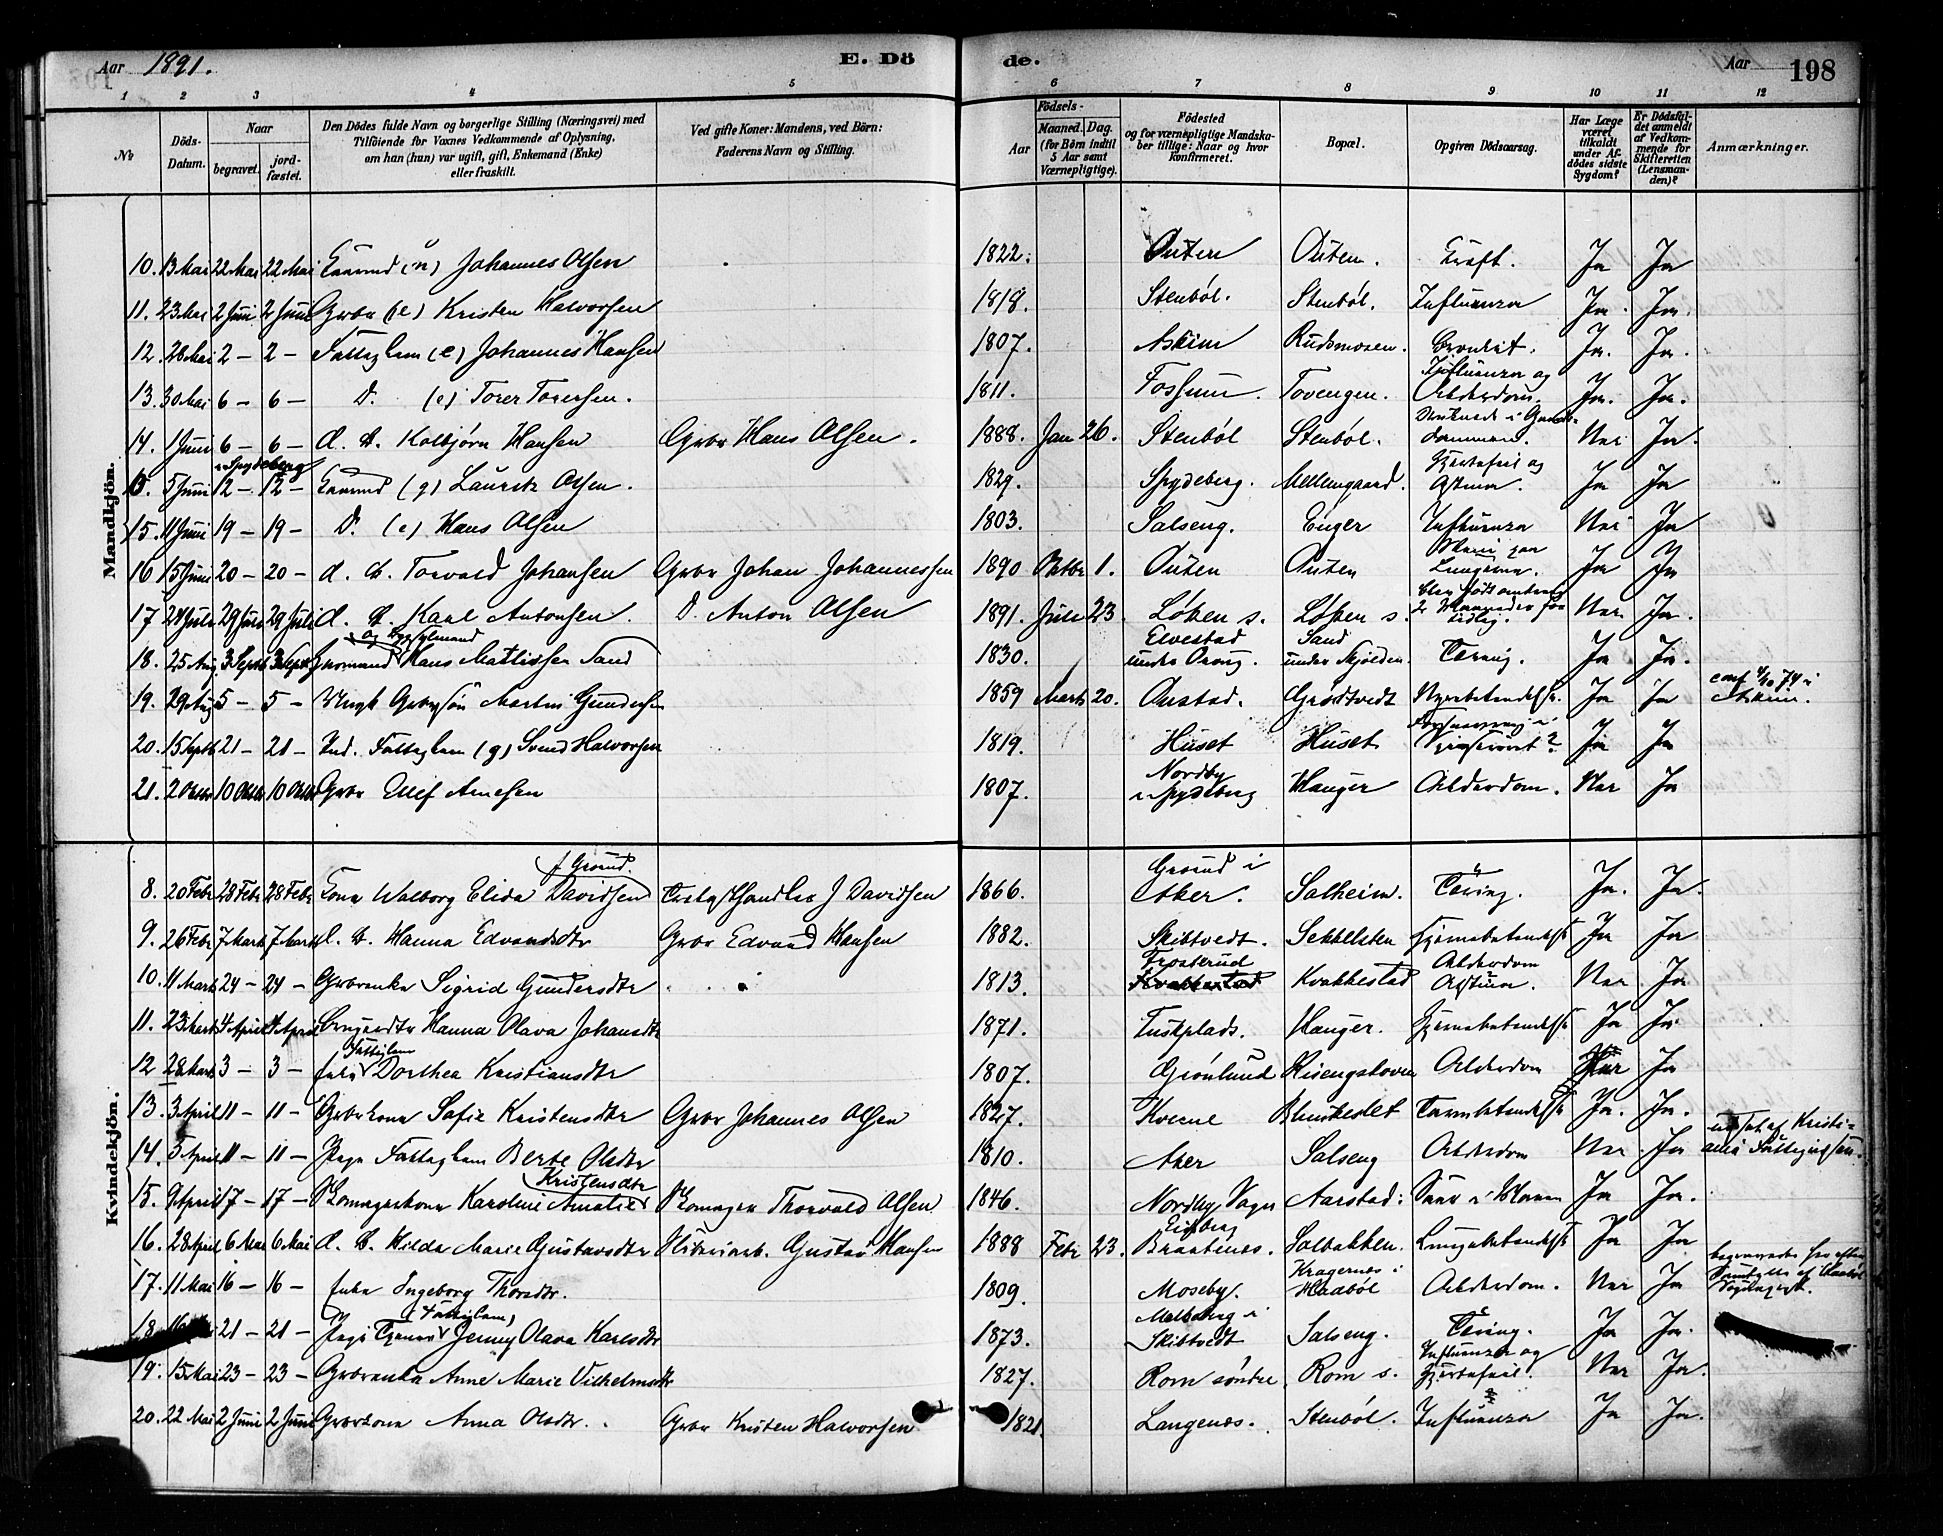 Aar 1891. E. Dö de. Aar 198
1 2 3 4 5 6 7 8 9 10 11 12
No
Döds-Datum.
Naar
begravet.
jord-fæstet.
Den Dödes fulde Navn og borgerlige Stilling (Næringsvei) med
Tilföiende for Voxnes Vedkommende af Oplysning,
om han (hun) var ugift, gift, Enkemand (Enke)
eller fraskilt.
Ved gifte Koner: Mandens, ved Börn:
Faderens Navn og Stilling.
Födsels-
Aar
Maaned. Dag.
(for Börn indtil
5 Aar samt
Værnepligtige).
Födested
og for værnepligtige Mandska-
ber tillige: Naar og hvor
konfirmeret.
Bopæl.
Opgiven Dödsaarsag.
Har Læge
været
tilkaldt
under Af-
dödes sidste
Sygdom?
Er Dödsfal-
det anmeldt
af Vedkom-
mende for
Skifteretten
(Lensman-
den)?
Anmærkninger.
Mandkjön.
10. 13 Mai 22 Mai 22 Mai Johannes Olsen 1822. Outen Outen. Kræft. Ja Ja
11. 23 Mai 2 Juni 2 Juni Grbr (e) Kristen Halvorsen 1818. Stenböl. Stenböl. Influenza Ja. Ja.
12. 28 Mai 2 — 2 — Fattiglem (e) Johannes Hansen 1807. Askim Rudsmosen. Bronkit. Ja. Ja.
13. 30 Mai 6 — 6 — D. (e) Torer Torersen. 1811. Fossum. Tovengen. Influenza og Alderdom. Ja. Ja.
14. 1 Juni 6 — 6 — d. b. Kolbjörn Hansen Grbr Hans Olsen. 1888. Jan 26. Stenböl Stenböl. Druknede i dammen. Nei Ja.
i Spydeberg
5 Juni 12 — 12 — (g) Lauritz Olsen. 1829. Spydeberg. Mellemgaard. Hjertefeil og Astma. Ja Ja
15. 11 Juni 19 — 19 — D. (e) Hans Olsen 1803. Salseng. Enger Influenza Nei Ja
16 15 Juni 20 — 20 — d. b. Torvald Johansen Grbr Johan Johannessen 1890 Oktbr 1. Outen Outen Ja Ja
17. 24 Juli 29 Juli 29 Juli d. b. Karl Antonsen. D. Anton Olsen 1891. Juli 23. Löken s. Löken s. blev født omtrent 2 Maaneder for tidlig. Nei Ja.
18. 25 Aug. 3 Septb 3 Septb Hans Mathisen Sand 1830. Elvestad under Sand under Skjolden. Tæring. Ja Ja.
19. 29 Aug 5 — 5 — Ungk Grbrsön Martin Gundersen 1859 Marts 20. Onstad. Grödtvedt Nyrebetændelse. Ja Ja conf 4/10 74 i Askim.
20. 15 Septb 21 — 21 — Ind. Fattiglem (g) Svend Halvorsen 1819. Huset Huset Ja Ja
21. 2 Oktbr 10 Oktbr 10 Oktbr Grbr Ellef Arnesen 1807. Nordby i Spydeberg Hauger Alderdom. Nei Ja
Kvindekjön.
8. 20 Febr 28 Febr 28 Febr Kone Walborg Elida Davidsen f Grorud. J Davidsen 1866. Grorud i Aker. Solheim. Tæring. Ja. Ja.
9. 26 Febr 7 Marts 7 Marts d. b. Hanna Edvardsdtr Grbr Edvard Hansen 1882. Skibtvedt. Sekkelsten Hjernebetændelse Ja Ja
10. 11 Marts 24 — 24 — Grbrenke Sigrid Gundersdtr 1813. Frosterud Kvakkestad Kvakkestad Alderdom Astma. Nei Ja
11. 23 Marts 4 April 4 April Hanna Olava Johansdtr 1871. Tuskplads. Hauger. Hjernebetændelse Ja Ja
12 28 Marts 3 — 3 — Enke Fattiglem Dorthea Kristiansdtr 1807. Grönlund Risengshoven Alderdom Ja
13. 3 April 11 — 11 — Grbrkone Sofie Kristensdtr Grbr Johannes Olsen 1827. Kverne Tarmbetændelse Ja. Ja.
14. 5 April 11 — 11 — Pige Fattiglem Berte Olsdtr 1810. Aker Salseng Alderdom Nei Ja udsat af Kristiania Fattigvæsen.
15. 9 April 17 — 17 — Skomagerkone Karoline Amalie Kristensdtr Skomager Thorvald Olsen 1846. Nordby Vaagn Aarstad. Saar i Maven Ja Ja.
16. 28 April 6 Mai 6 Mai d. b. Hilda Marie Gustavsdtr Gustav Hansen 1888 Febr 23. Eidsberg Braatenes. Solbakken. Lungebetændelse Ja Ja
17. 11 Mai 16 — 16 — Enke Ingeborg Thorsdtr. 1809. Moseby. Kragernes i Haaböl Alderdom. Nei Ja
18 21 — 21 — Pige Tjener (Fattiglem) Jenny Olava Karlsdtr 1873. Melleberg i Skibtvedt Salseng. Tæring. Ja Ja.
19. 15 Mai 23 — 23 — Grbrenke Anne Marie Vilhelmsdtr 1827. Rom söndre Rom s. Influenza og Hjertefeil. Nei Ja.
20. 22 Mai 2 Juni 2 Juni Grbrkone Anna Olsdtr. Grbr Kristen Halvorsen 1821. Langenæs. Stenböl. Influenza Ja Ja.